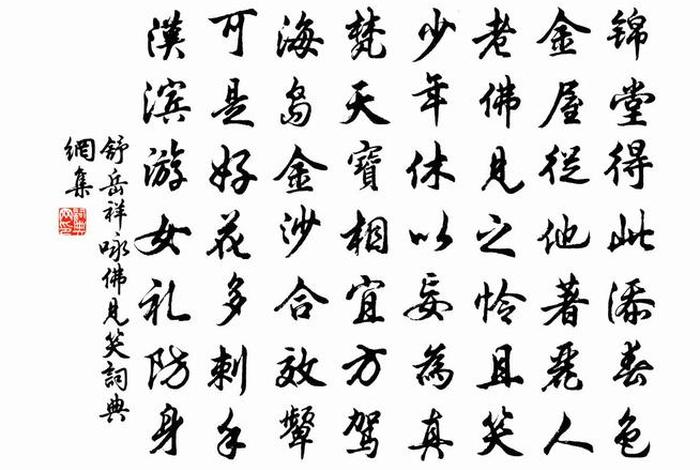 锦堂得此添春色
金屋從他著麗人
老佛見之怜且笑
少年休以妄為真
梵天寶相宜方駕
海岛金沙合效顰
可是好花多刺手
漢滨游女礼防身
舒岳祥咏佛見笑詞典
網集